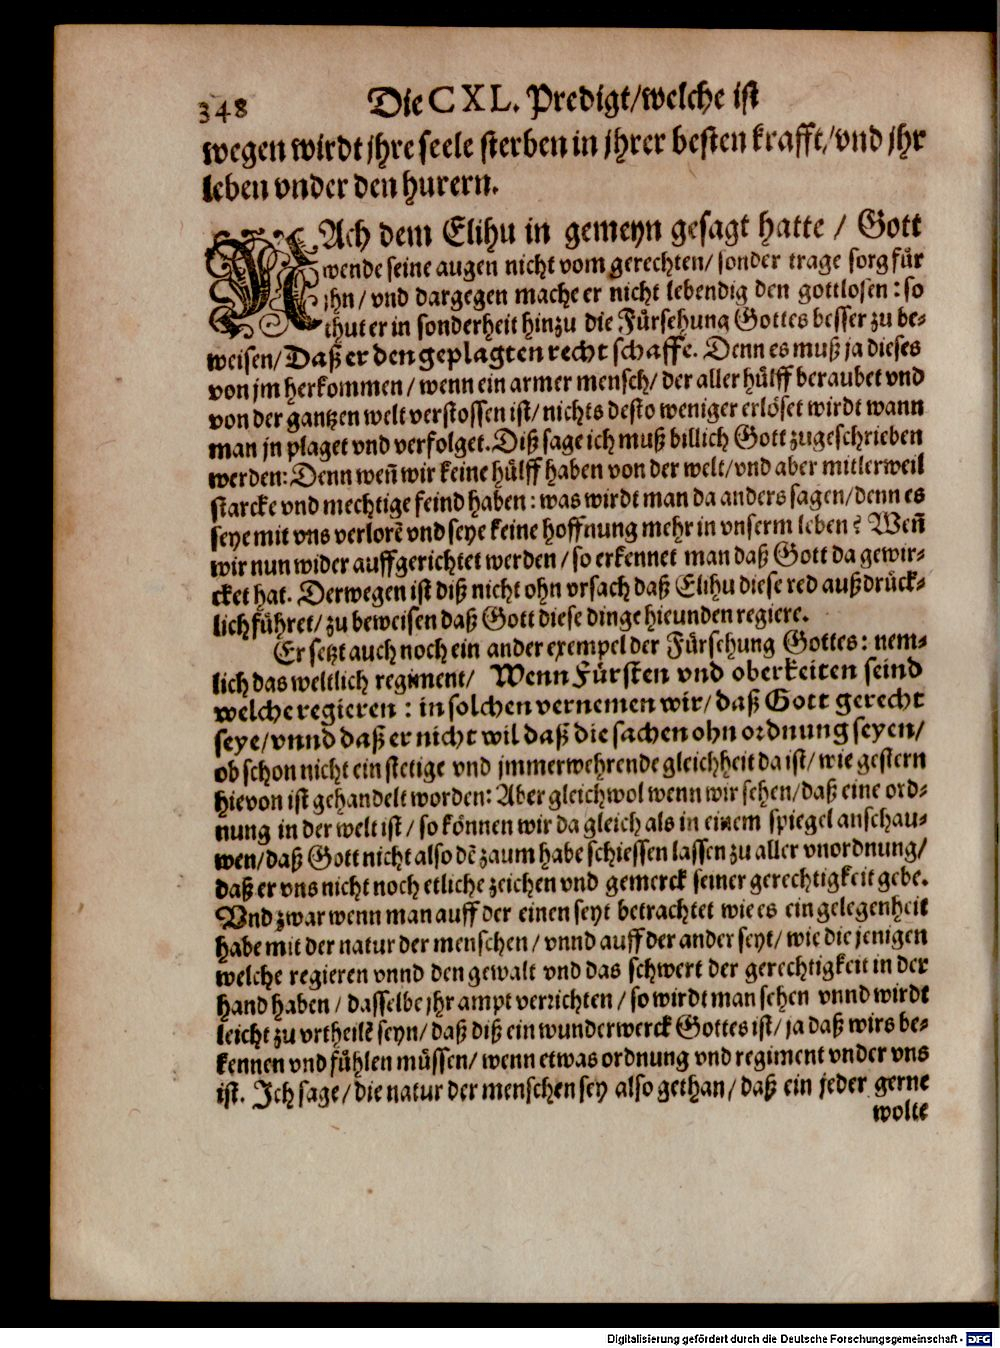 348
Die CXL. Predigt/welche ist
wegen wirdt jhre seele sterben in jhrer besten krafft/vnd jhr
leben vnder den hurern.
NAch dem Elihu in gemeyn gesagt hatte / Gott
wende seine augen nicht vom gerechten/ sonder trage sorg für
jhn/ vnd dargegen mache er nicht lebendig den gottlosen: so
thut er in sonderheit hinzu die Fürsehung Gottes besser zu be-
weisen/ Daß er den geplagten recht schaffe. Denn es muß ja dieses
von jm herkommen/ wenn ein armer mensch/ der aller hülff beraubet vnd
von der gantzen welt verstossen ist/ nichts desto weniger erlöset wirdt wann
man jn plaget vnd verfolget. Diß sage ich muß billich Gott zugeschrieben
werden: Denn weñ wir keine hülff haben von der welt/ vnd aber mitlerweil
starcke vnd mechtige feind haben: was wirdt man da anders sagen/ denn es
seye mit vns verlorẽ vnd seye keine hoffnung mehr in vnserm leben? Weñ
wir nun wider auffgerichtet werden/ so erkennet man daß Gott da gewir-
cket hat. Derwegen ist diß nicht ohn vrsach daß Elihu diese red außdrück-
lich führet/ zu beweisen daß Gott diese dinge hieunden regiere.
Er setzt auch noch ein ander exempel der Fürsehung Gottes: nem-
lich das weltlich regiment/ Wenn Fürsten vnd oberkeiten seind
welche regieren: in solchen vernemen wir/ daß Gott gerecht
seye/ vnnd daß er nicht wil daß die sachen ohn ordnung seyen/
ob schon nicht ein stetige vnd jmmerwehrende gleichheit da ist/ wie gestern
hievon ist gehandelt worden: Aber gleichwol wenn wir sehen/ daß eine ord-
nung in der welt ist/ so können wir da gleich als in einem spiegel anschau-
wen/ daß Gott nicht also dẽ zaum habe schiessen lassen zu aller vnordnung/
daß er vns nicht noch etliche zeichen vnd gemerck seiner gerechtigkeit gebe.
Vnd zwar wenn man auff der einen seyt betrachtet wie es ein gelegenheit
habe mit der natur der menschen/ vnnd auff der ander seyt/ wie die jenigen
welche regieren vnnd den gewalt vnd das schwert der gerechtigkeit in der
hand haben/ dasselbe jhr ampt verrichten/ so wirdt man sehen vnnd wirdt
leicht zu vrtheilẽ seyn/ daß diß ein wunderwerck Gottes ist/ ja daß wirs be-
kennen vnd fühlen müssen/ wenn etwas ordnung vnd regiment vnder vns
ist. Ich sage/ die natur der menschen sey also gethan/ daß ein jeder gerne
wolte
Digitalisierung gefördert durch die Deutsche Forschungsgemeinschaft - DFG